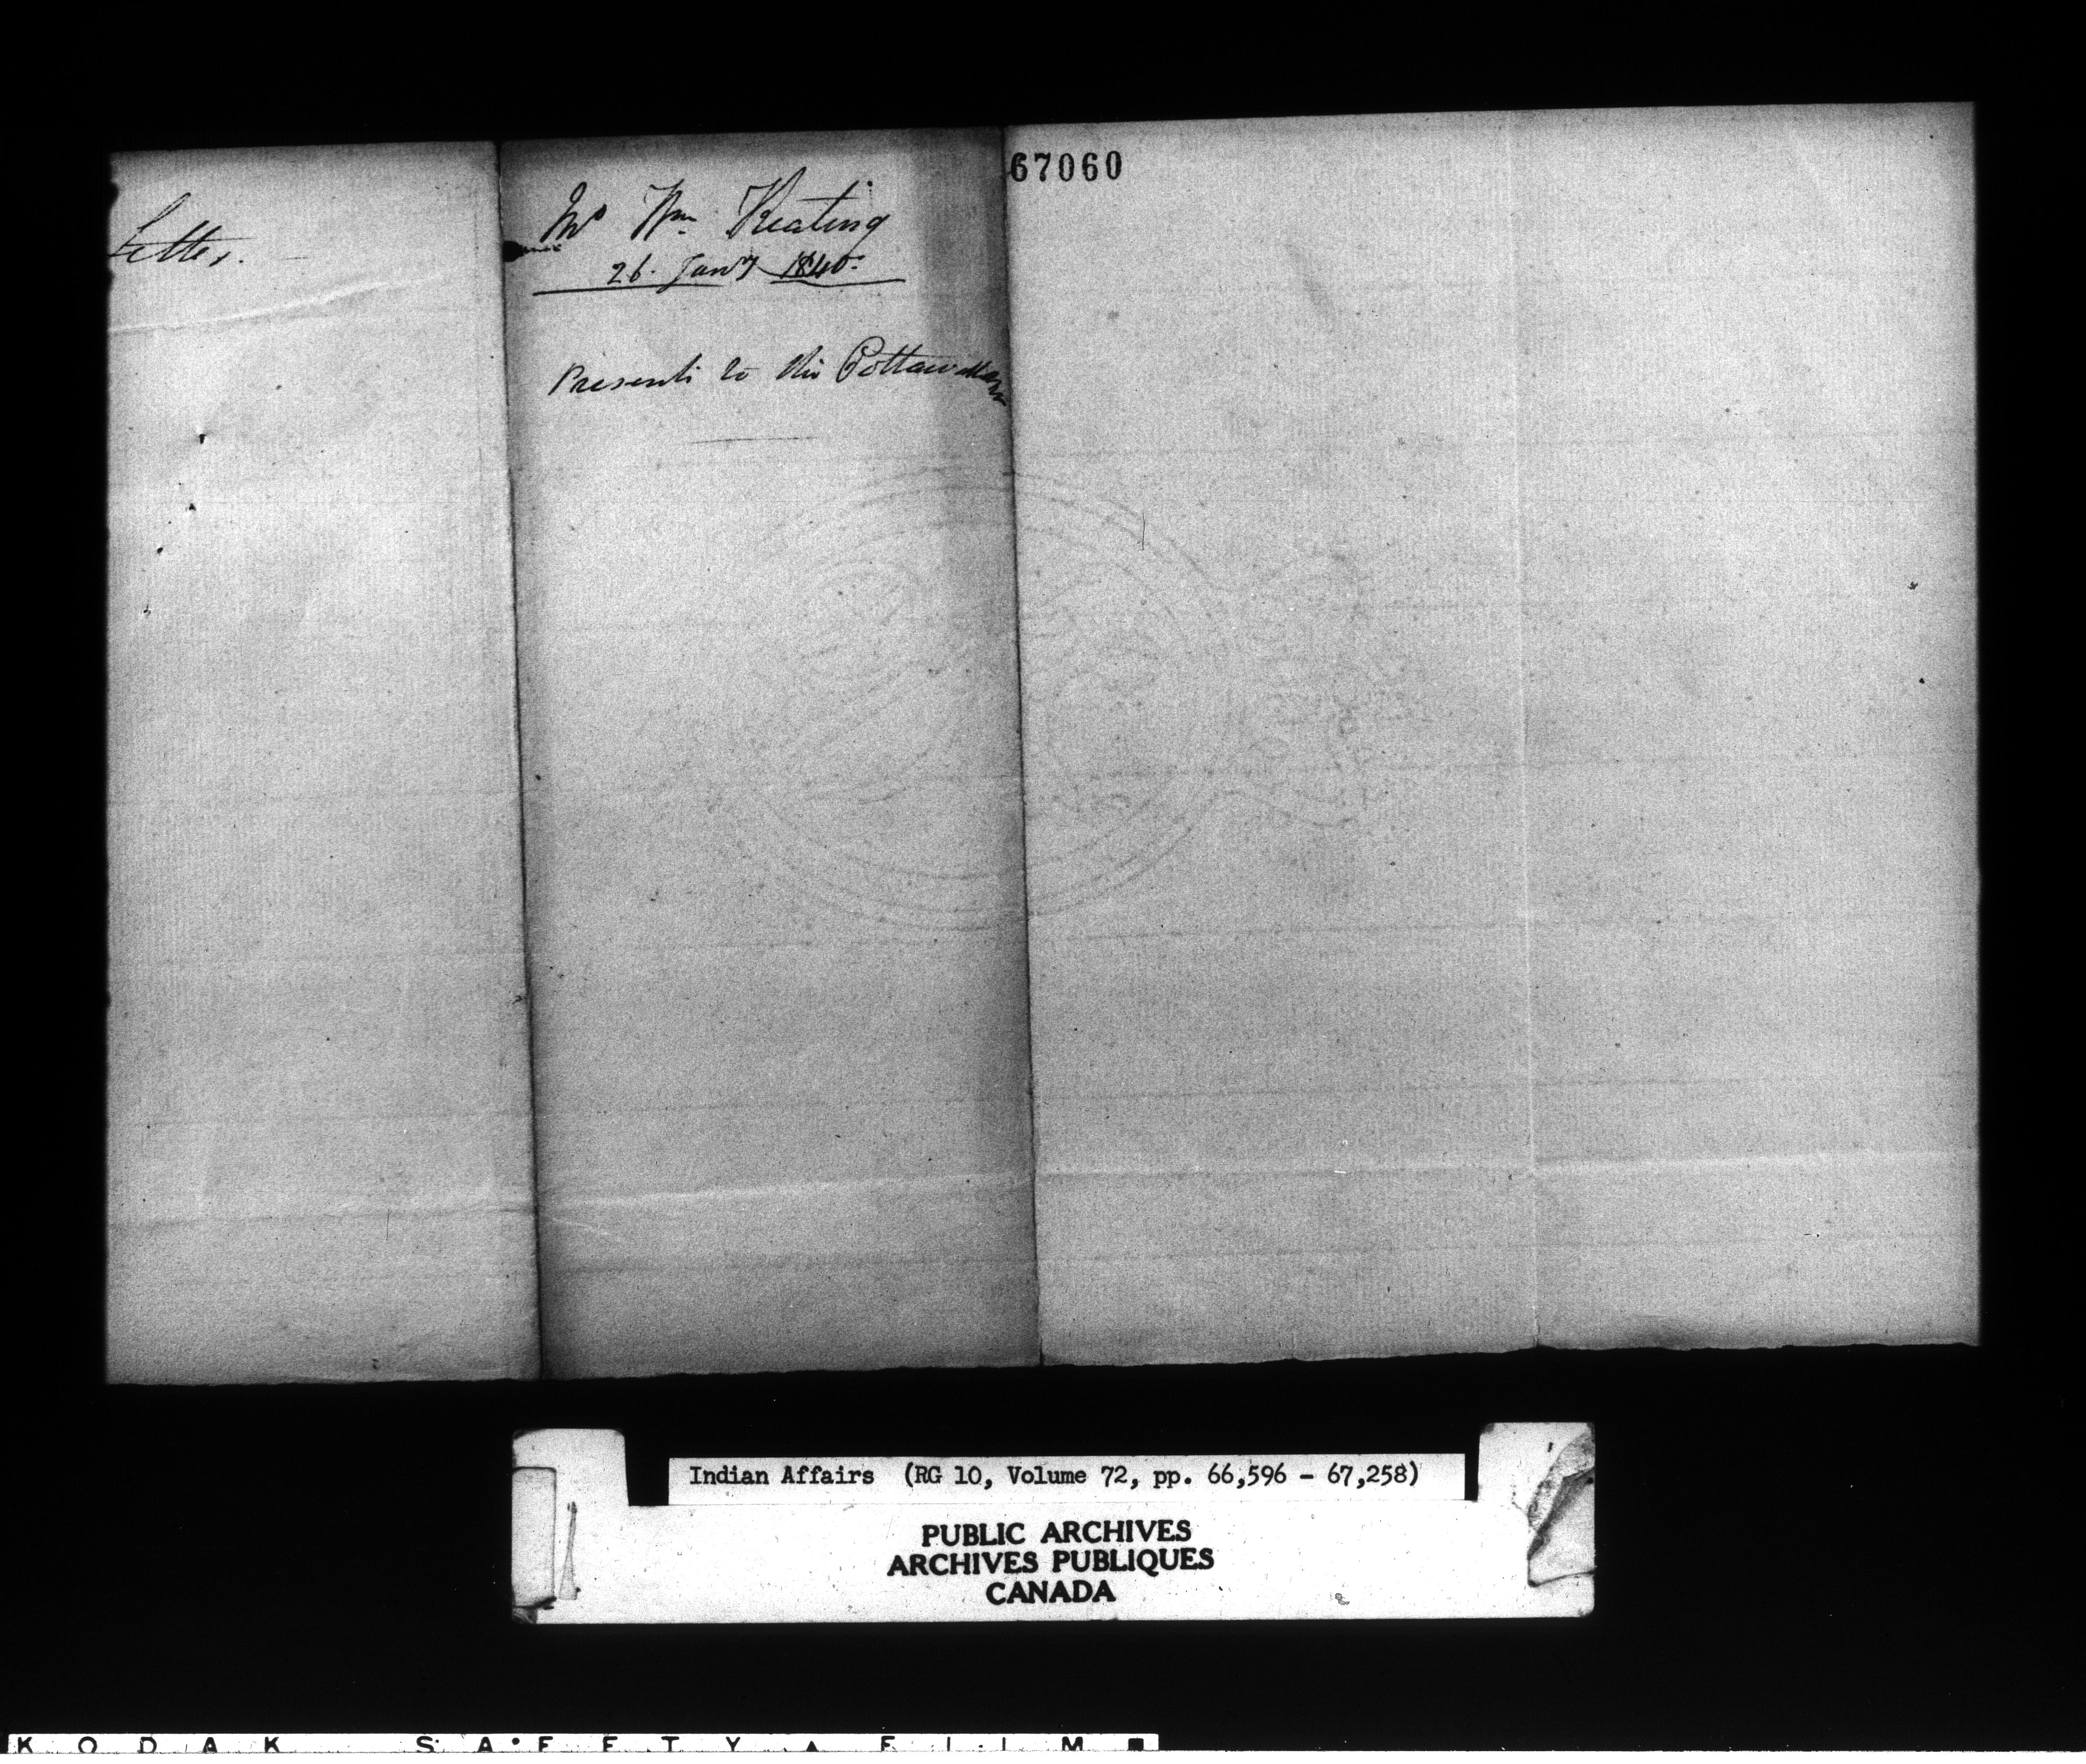 Letter.
Mr Wm Keating
26. Jany 1840.
Presents to the Pottawattam
67060
Indian Affairs (RG 10, Volume 72, pp. 66,596 - 67,258)
PUBLIC ARCHIVES
ARCHIVES PUBLIQUES
CANADA
KODAK SAFETY FILM